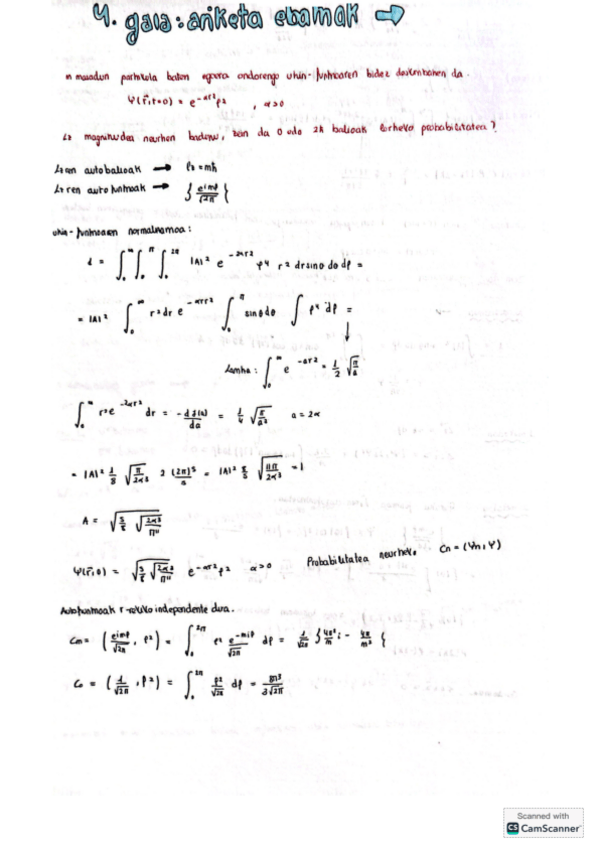 4. gaia: ariketa ebatziak →
m masadun partikula baten egoera ondorengo uhin-funtzioaren bidez deskribatzen da.
Ψ(r⃗,t=0) = e^{-αr²}φ² , α>0
Lz magnitudea neurtzen badugu, zein da 0 edo 2ħ balioak lortzeko probabilitatea?
Lzren autobalioak → lz = mħ
Lzren autofuntzioak → { e^{imφ}/√2π }
uhin-funtzioaren normalizazioa:
1 = ∫₀^∞ ∫₀^π ∫₀^{2π} |A|² e^{-2αr²} φ⁴ r² dr sinθ dθ dφ =
= |A|² ∫₀^∞ r² dr e^{-2αr²} ∫₀^π sinθ dθ ∫ φ⁴ dφ =
∫₀^∞ e^{-ar²} = 1/2 √(π/a)
∫₀^∞ r² e^{-2αr²} dr = - dI(a)/da = 1/4 √(π/a³) a = 2α
= |A|² 1/8 √(π/2α³) 2 (2π)⁵/5 = |A|² 8/5 √(π¹¹/2α³) = 1
A = √(5/8 √(2α³/π¹¹))
Ψ(r⃗,0) = √(5/8 √(2α³/π¹¹)) e^{-αr²} φ² α>0 Probabilitatea neurtzeko Cn = (Ψn, Ψ)
Autofuntzioak r-rekiko independente dira.
Cm = (e^{imφ}/√2π, φ²) = ∫₀^{2π} φ² e^{-miφ}/√2π dφ = 1/√2π { 4π²/m i - 4π/m² }
C₀ = (1/√2π, φ²) = ∫₀^{2π} φ²/√2π dφ = 8π³/3√2π
Scanned with
CS CamScanner